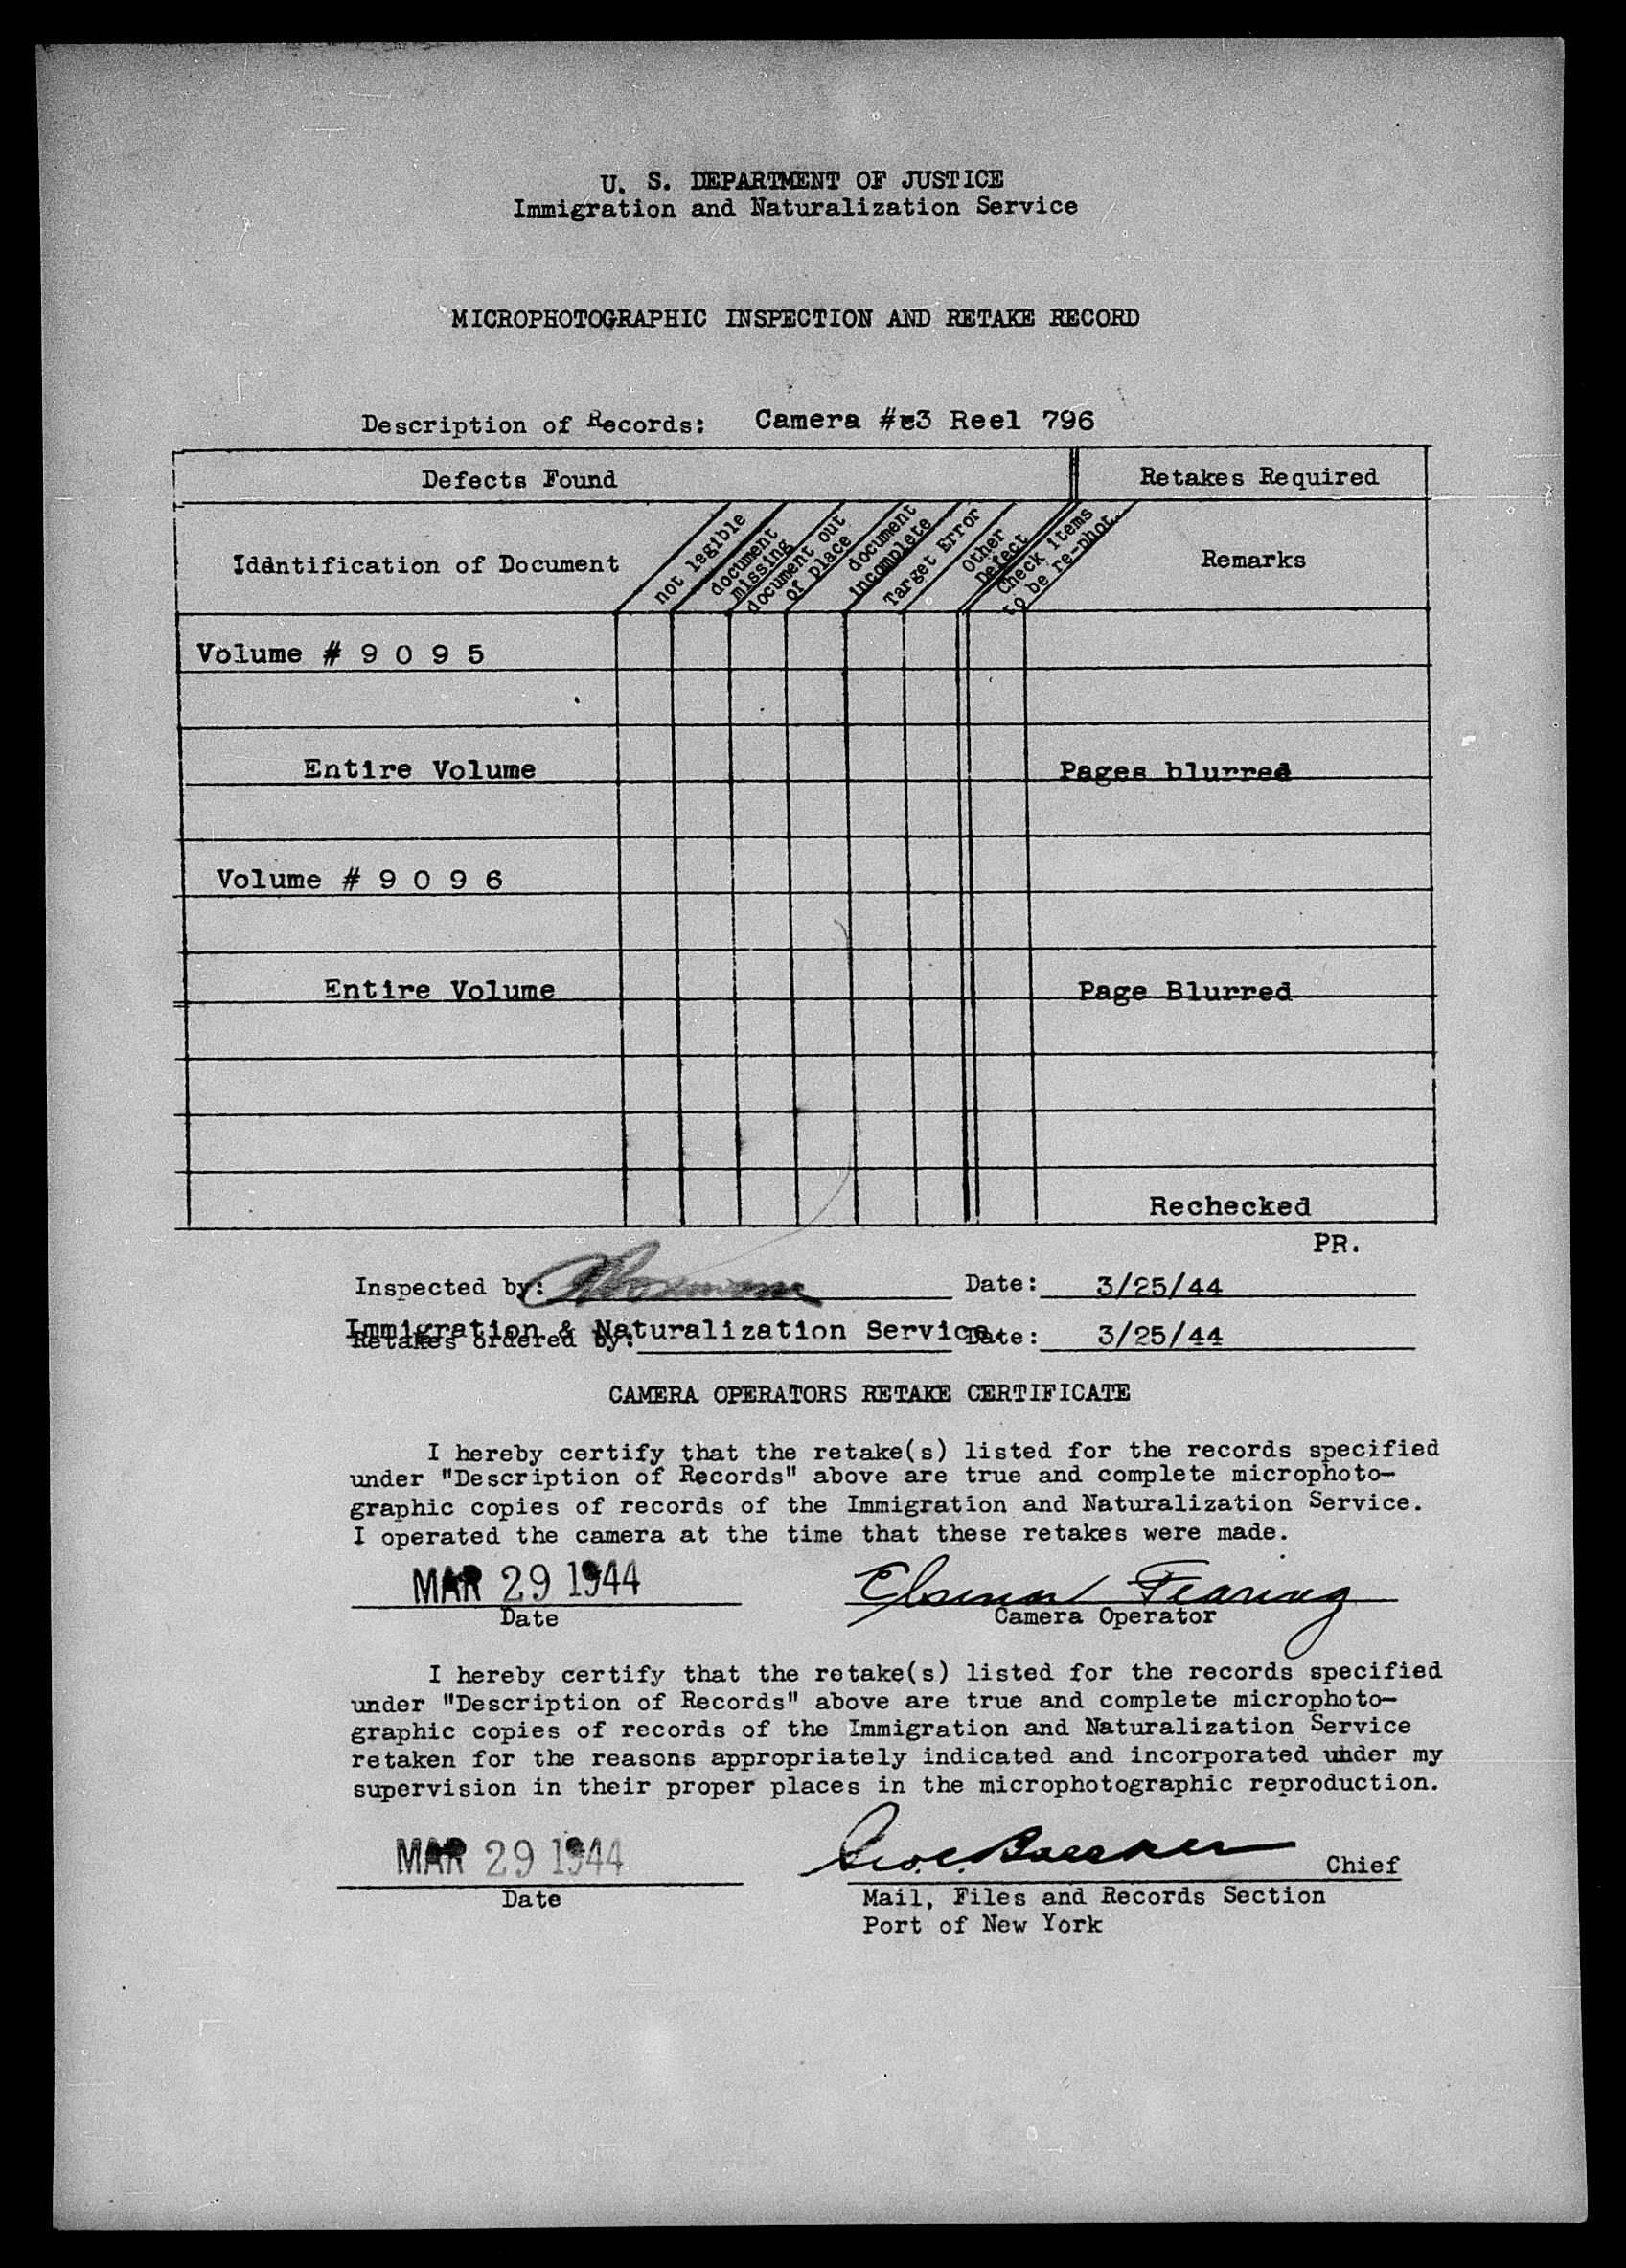 U. S. DEPARTMENT OF JUSTICE
Immigration and Naturalization Service
MICROPHOTOGRAPHIC INSPECTION AND RETAKE RECORD
Description of Records: Camera #3 Reel 796
Defects Found
Retakes Required
Idantification of Document
not legible
document
missing
document out
of place
document
incomplete
Target Error
Other
Defect
Check items
to be re-phot.
Remarks
Volume # 9 0 9 5
Entire Volume
Pages blurred
Volume # 9 0 9 6
Entire Volume
Page Blurred
Rechecked
PR.
Inspected by: Date: 3/25/44
Immigration & Naturalization Service.
Retakes ordered by: Date: 3/25/44
CAMERA OPERATORS RETAKE CERTIFICATE
I hereby certify that the retake(s) listed for the records specified
under "Description of Records" above are true and complete microphoto-
graphic copies of records of the Immigration and Naturalization Service.
I operated the camera at the time that these retakes were made.
MAR 29 1944 Fearing
Date Camera Operator
I hereby certify that the retake(s) listed for the records specified
under "Description of Records" above are true and complete microphoto-
graphic copies of records of the Immigration and Naturalization Service
retaken for the reasons appropriately indicated and incorporated under my
supervision in their proper places in the microphotographic reproduction.
MAR 29 1944 Chief
Date Mail, Files and Records Section
Port of New York